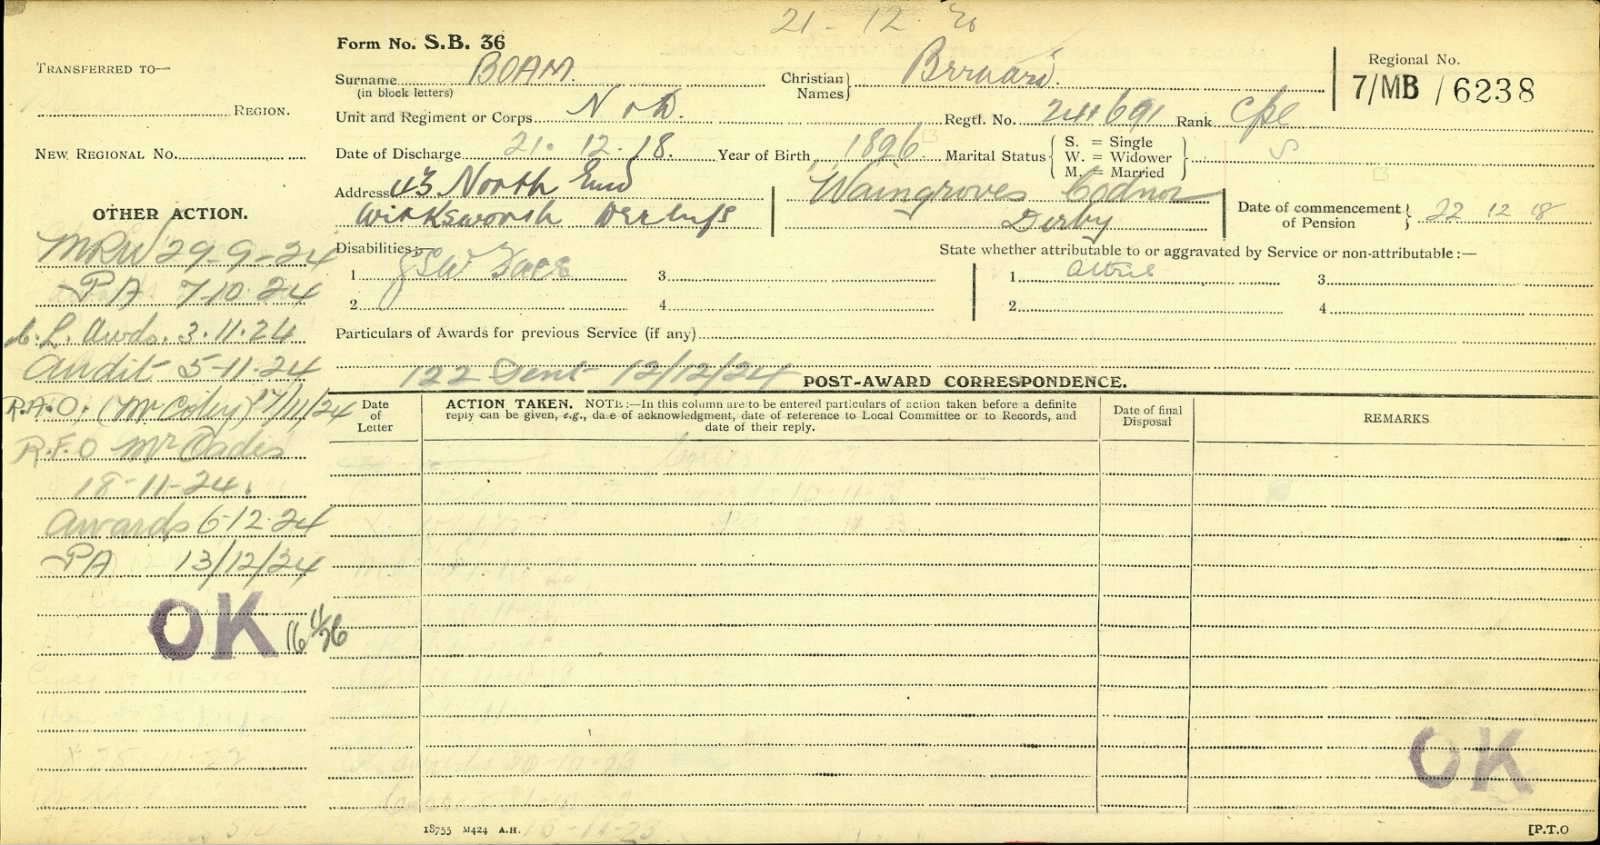 21 - 12 - 20
Form No. S.B. 36
TRANSFERRED TO—
REGION.
NEW REGIONAL No.
Surname BOAM.
(in block letters)
Christian Names Bernard.
Regional No.
7/MB /6238
Unit and Regiment or Corps N & D.
Regtl. No. 241691 Rank Cpl
Date of Discharge 21. 12. 18. Year of Birth 1896 Marital Status S. = Single W. = Widower M. = Married S
Address 43 North End
Wirksworth Derbys
Waingroves Codnor
Derby
Date of commencement of Pension 22 12 18
Disabilities:—
1 GSW Face 3
2 4
State whether attributable to or aggravated by Service or non-attributable:—
1 3
2 4
Particulars of Awards for previous Service (if any)
122 Sent 12/12/24
OTHER ACTION.
MRW 29-9-24
PA 7-10-24
Awds. 3.11.24
Audit 5-11-24
R.A.O. (Mr 17/11/24
R.F.O Mr
18-11-24.
Awards 6-12-24
PA 13/12/24
OK
POST-AWARD CORRESPONDENCE.
Date of Letter
ACTION TAKEN. NOTE:—In this column are to be entered particulars of action taken before a definite
reply can be given, e.g., date of acknowledgment, date of reference to Local Committee or to Records, and
date of their reply.
Date of final Disposal
REMARKS
OK
18755 M424 A.H.
[P.T.O